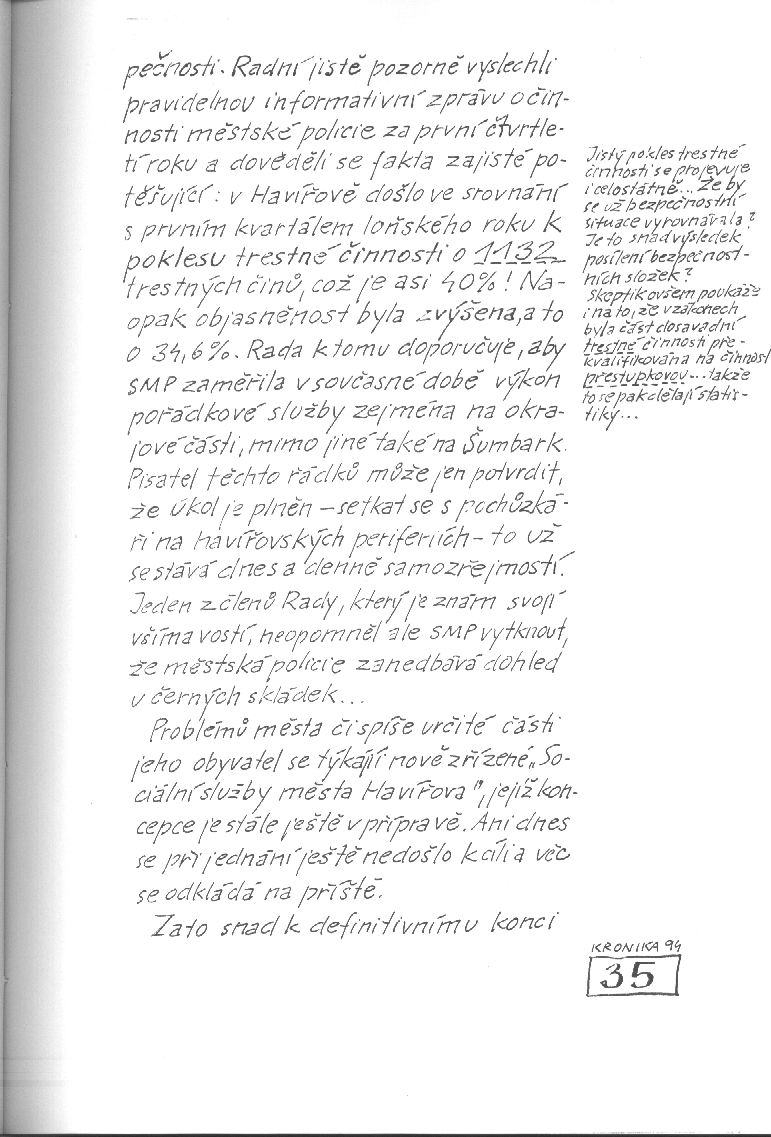 pečnosti. Radní jistě pozorně vyslechli
pravidelnou informativní zprávu o čin-
nosti městské policie za první čtvrtle-
tí roku a dověděli se fakta zajisté po-
těšující: v Havířově došlo ve srovnání
s prvním kvartálem loňského roku k
poklesu trestné činnosti o 1132
trestných činů, což je asi 40%! Na-
opak objasněnost byla zvýšena, a to
o 34,6%. Rada k tomu doporučuje, aby
SMP zaměřila v současné době výkon
pořádkové služby zejména na okra-
jové části, mimo jiné také na Šumbark.
Pisatel těchto řádků může jen potvrdit,
že úkol je plněn – setkat se s pochůzká-
ři na havířovských periferiích – to už
se stává dnes a denně samozřejmostí.
Jeden z členů Rady, který je znám svojí
všímavostí, neopomněl ale SMP vytknout,
že městská policie zanedbává dohled
u černých skládek...
Problémů města či spíše určité části
jeho obyvatel se týkají nově zřízené „So-
ciální služby města Havířova", jejíž kon-
cepce je stále ještě v přípravě. Ani dnes
se při jednání ještě nedošlo k cíli a věc
se odkládá na příště.
Zato snad k definitivnímu konci
Jistý pokles trestné
činnosti se projevuje
i celostátně... Že by
se už bezpečnostní
situace vyrovnávala?
Je to snad výsledek
posílení bezpečnost-
ních složek?
Skeptik ovšem poukáže
i na to, že v zákonech
byla část dosavadní
trestné činnosti pře-
kvalifikována na činnost
přestupkovou... takže
to se pak dělají statis-
tiky...
KRONIKA 94
35